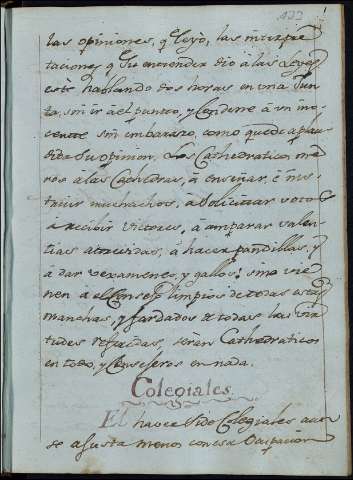 122
las opiniones, q̃ leyò, las interpre
taciones, q̃ su entender diò à las Leyes
estè hablando dos horas en una Jun
ta, sin ir àl punto, y condene à un ino
cente sin embarazo, como quede aplau
dida su opinion. Los Cathedraticos me
ros a las Cathedras, à enseñar, è ins
truir muchachos, a solicitar votos
a recibir victores, à amparar valen
tias atrevidas, à hacer pandillas, y
à dar vexamenes, y gallos: sino vie
nen à el Consejo limpios de todas estas
manchas, y fardados de todas las vir
tudes referidas, seràn Cathedraticos
en todo, y Consejeros en nada.
Colegiales.
El haver sido Colegiales aun
se ajusta menos con esa ocupacion